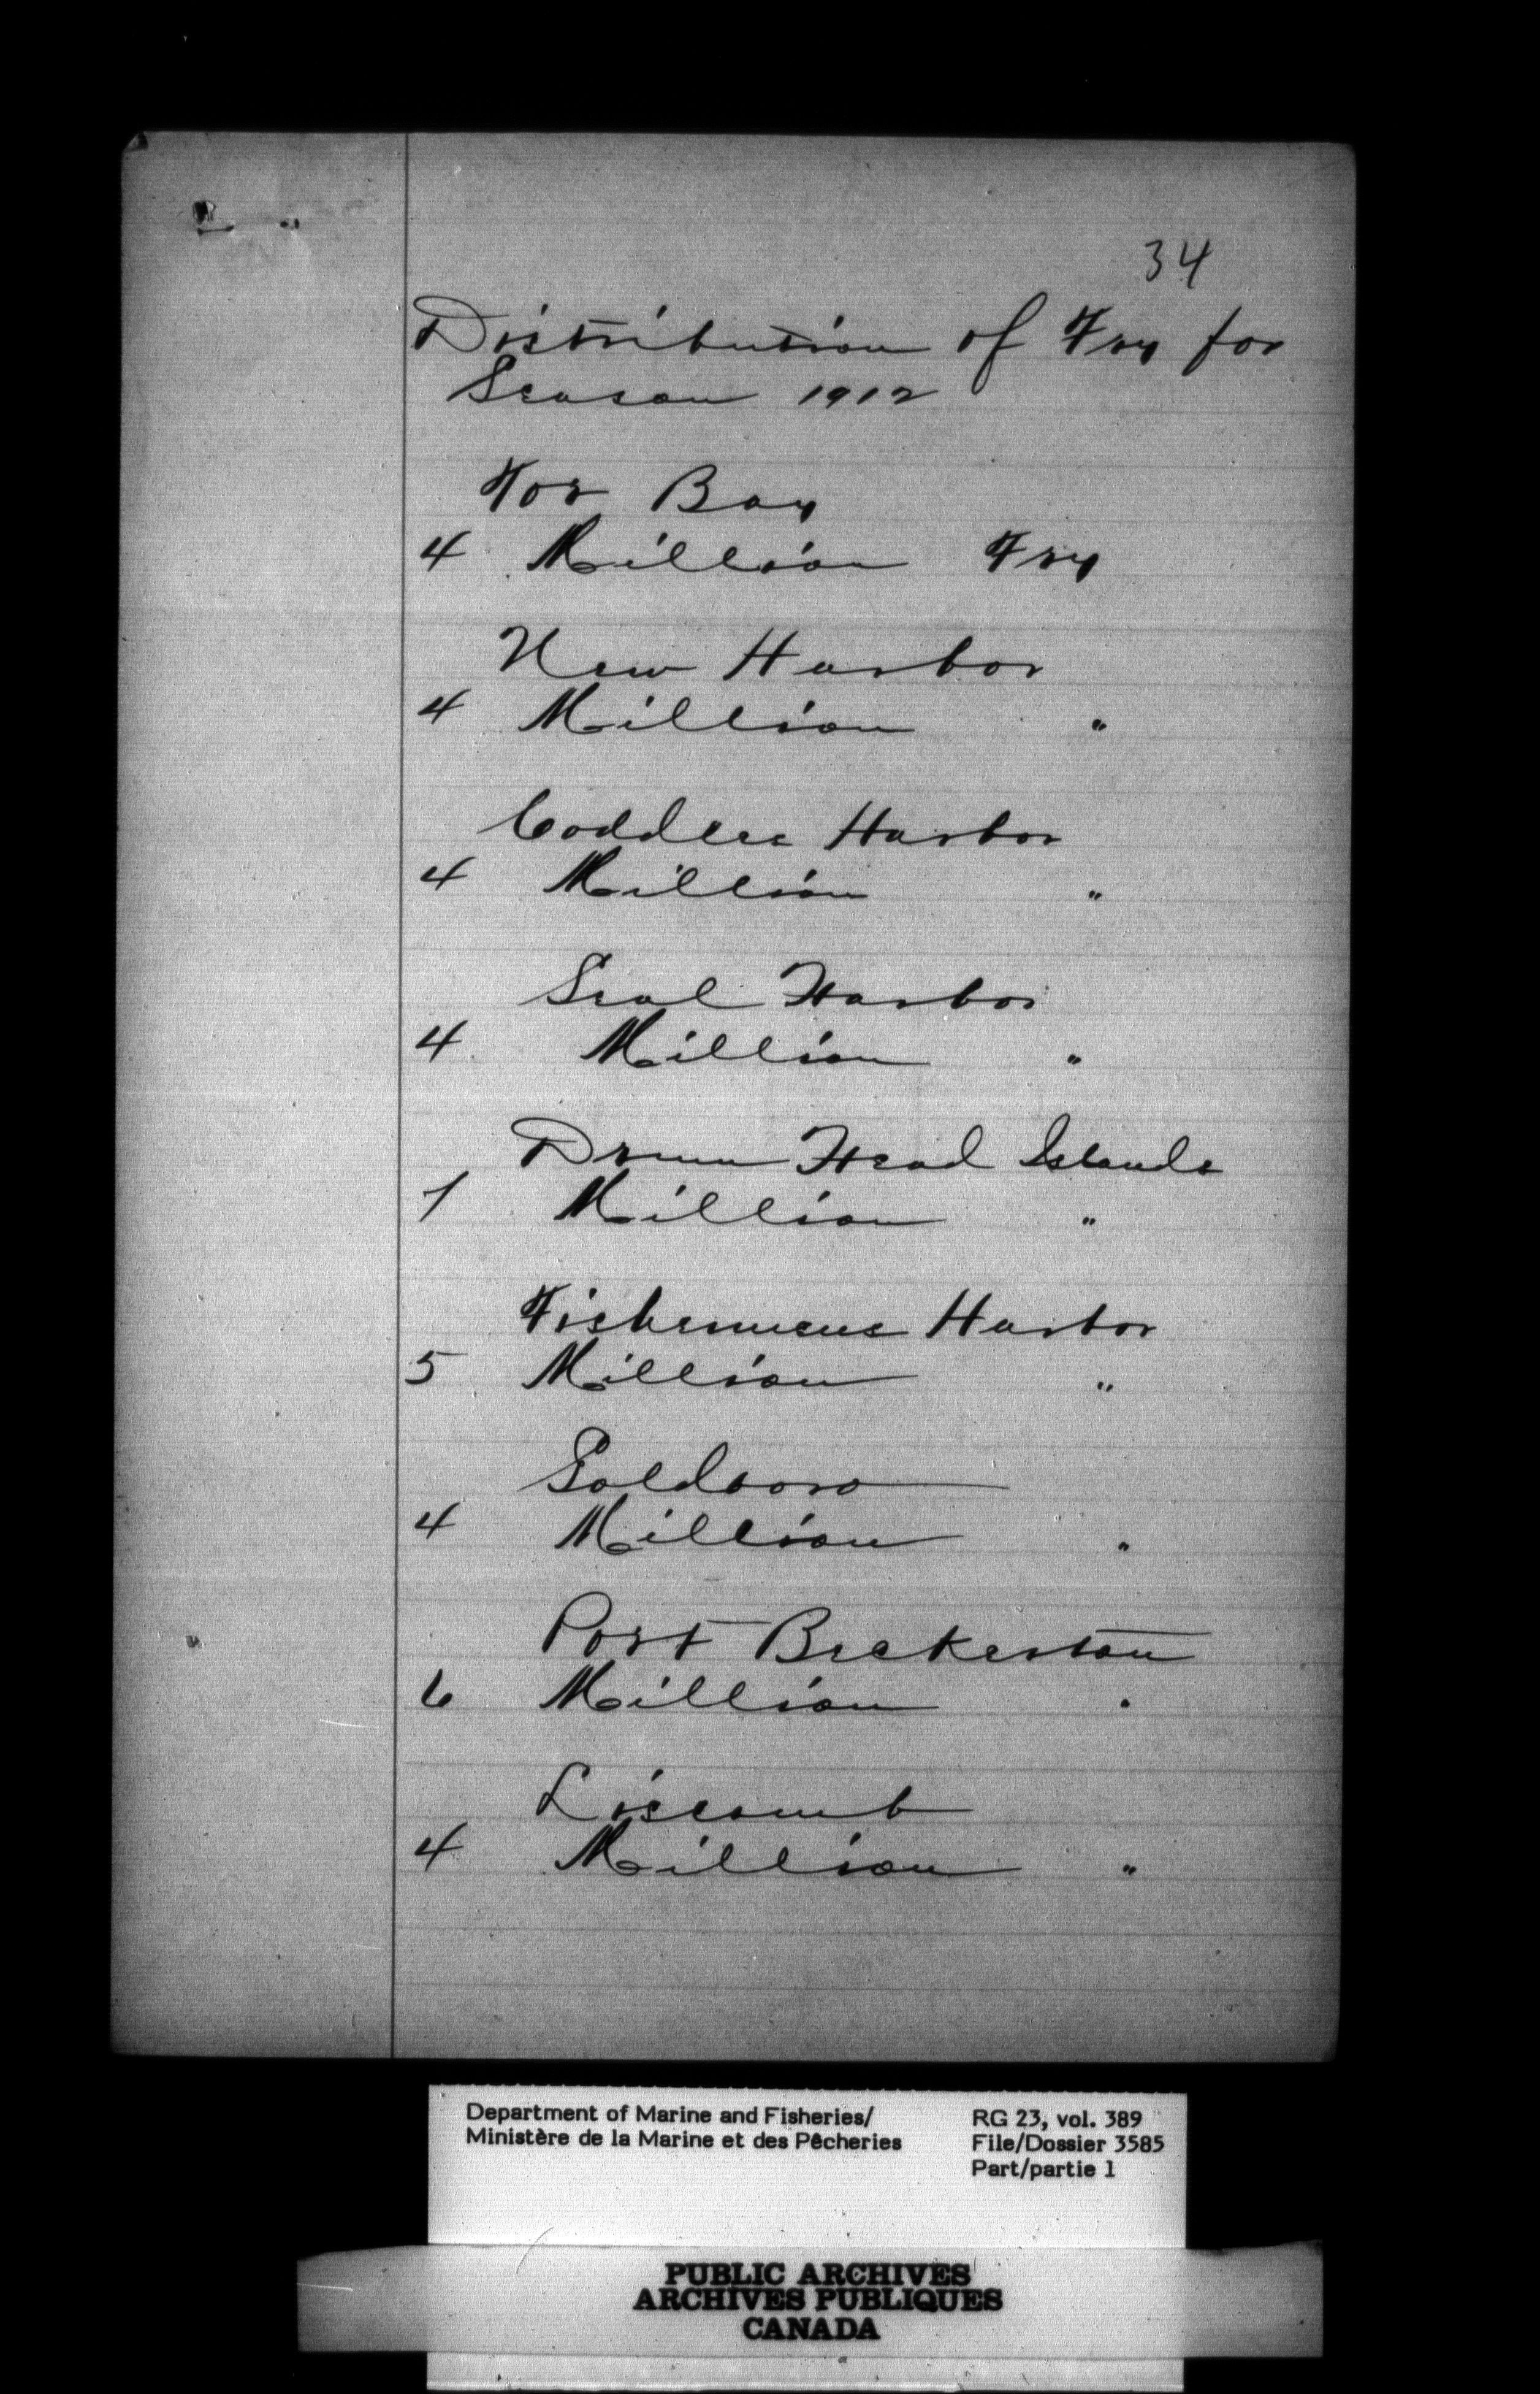 34
Distribution of Fry for
Season 1912
Tor Bay
4 Million Fry
New Harbor
4 Million "
Coddles Harbor
4 Million "
Seal Harbor
4 Million "
Drum Head Islands
1 Million "
Fishermens Harbor
5 Million "
Goldboro
4 Million "
Port Beckerton
6 Million "
Liscomb
4 Million "
Department of Marine and Fisheries/
Ministère de la Marine et des Pêcheries
RG 23, vol. 389
File/Dossier 3585
Part/partie 1
PUBLIC ARCHIVES
ARCHIVES PUBLIQUES
CANADA